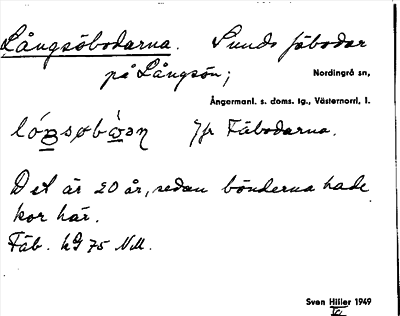 Långsöbodarna. Sunds fäbodar
på Långsön;
Nordingrå sn,
Ångermanl. s. doms. tg., Västernorrl. l.
Jfr Fäbodarna.
Det är 20 år, sedan bönderna hade
kor här.
Fäb. kG 75 NM.
Sven Hillér 1949